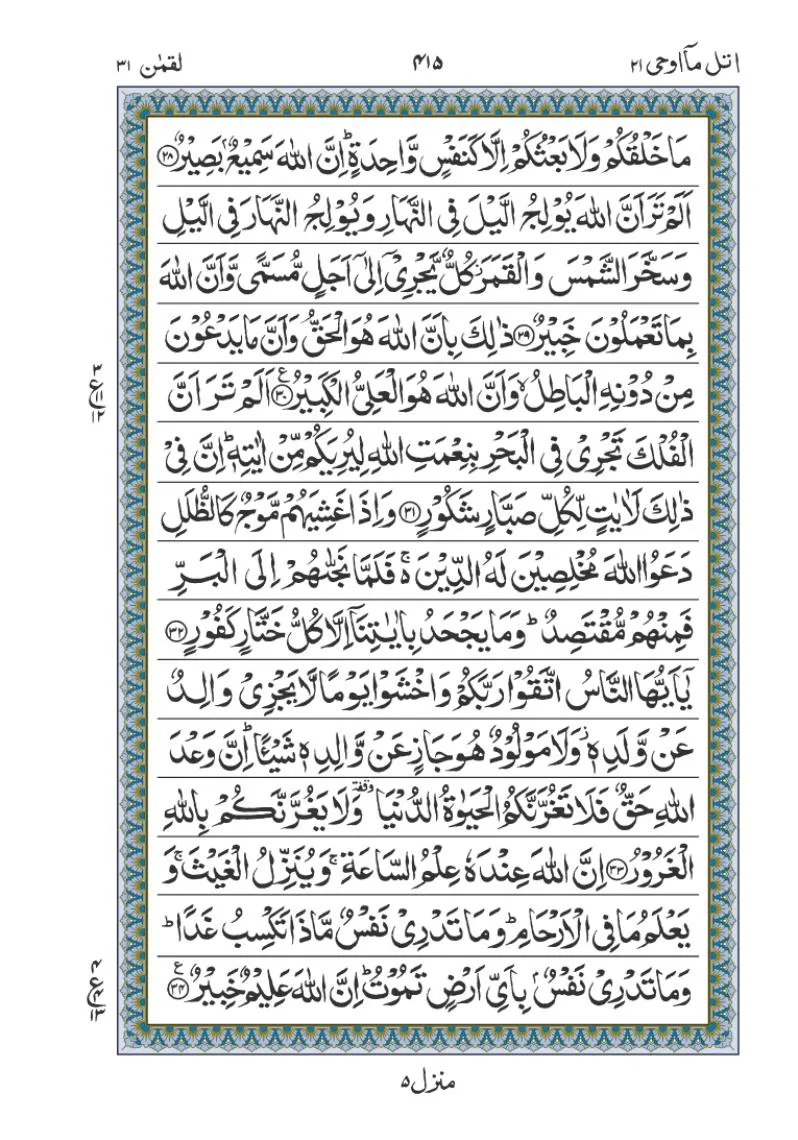 اتل مآ اوحی ۲۱
۴۱۵
لقمٰن ۳۱
مَا خَلْقُكُمْ وَلَا بَعْثُكُمْ اِلَّا كَنَفْسٍ وَّاحِدَةٍ ؕ اِنَّ اللّٰهَ سَمِيْعٌۢ بَصِيْرٌ ﴿۲۸﴾
اَلَمْ تَرَ اَنَّ اللّٰهَ يُوْلِجُ الَّيْلَ فِى النَّهَارِ وَيُوْلِجُ النَّهَارَ فِى الَّيْلِ
وَسَخَّرَ الشَّمْسَ وَالْقَمَرَ ؗ كُلٌّ يَّجْرِىْۤ اِلٰٓى اَجَلٍ مُّسَمًّى وَّاَنَّ اللّٰهَ
بِمَا تَعْمَلُوْنَ خَبِيْرٌ ﴿۲۹﴾ ذٰلِكَ بِاَنَّ اللّٰهَ هُوَ الْحَقُّ وَاَنَّ مَا يَدْعُوْنَ
مِنْ دُوْنِهِ الْبَاطِلُ ۙ وَاَنَّ اللّٰهَ هُوَ الْعَلِىُّ الْكَبِيْرُ ﴿۳۰﴾ ع اَلَمْ تَرَ اَنَّ
الْفُلْكَ تَجْرِىْ فِى الْبَحْرِ بِنِعْمَتِ اللّٰهِ لِيُرِيَكُمْ مِّنْ اٰيٰتِهٖ ؕ اِنَّ فِىْ
ذٰلِكَ لَاٰيٰتٍ لِّكُلِّ صَبَّارٍ شَكُوْرٍ ﴿۳۱﴾ وَاِذَا غَشِيَهُمْ مَّوْجٌ كَالظُّلَلِ
دَعَوُا اللّٰهَ مُخْلِصِيْنَ لَهُ الدِّيْنَ ۚ۬ فَلَمَّا نَجّٰىهُمْ اِلَى الْبَرِّ
فَمِنْهُمْ مُّقْتَصِدٌ ؕ وَمَا يَجْحَدُ بِاٰيٰتِنَاۤ اِلَّا كُلُّ خَتَّارٍ كَفُوْرٍ ﴿۳۲﴾
يٰۤاَيُّهَا النَّاسُ اتَّقُوْا رَبَّكُمْ وَاخْشَوْا يَوْمًا لَّا يَجْزِىْ وَالِدٌ
عَنْ وَّلَدِهٖ ؗ وَلَا مَوْلُوْدٌ هُوَ جَازٍ عَنْ وَّالِدِهٖ شَيْـًٔا ؕ اِنَّ وَعْدَ
اللّٰهِ حَقٌّ فَلَا تَغُرَّنَّكُمُ الْحَيٰوةُ الدُّنْيَا ٝ وقفة وَلَا يَغُرَّنَّكُمْ بِاللّٰهِ
الْغَرُوْرُ ﴿۳۳﴾ اِنَّ اللّٰهَ عِنْدَهٗ عِلْمُ السَّاعَةِ ۚ وَيُنَزِّلُ الْغَيْثَ ۚ وَ
يَعْلَمُ مَا فِى الْاَرْحَامِ ؕ وَمَا تَدْرِىْ نَفْسٌ مَّاذَا تَكْسِبُ غَدًا ؕ
وَمَا تَدْرِىْ نَفْسٌۢ بِاَىِّ اَرْضٍ تَمُوْتُ ؕ اِنَّ اللّٰهَ عَلِيْمٌ خَبِيْرٌ ﴿۳۴﴾ ع
منزل ۵